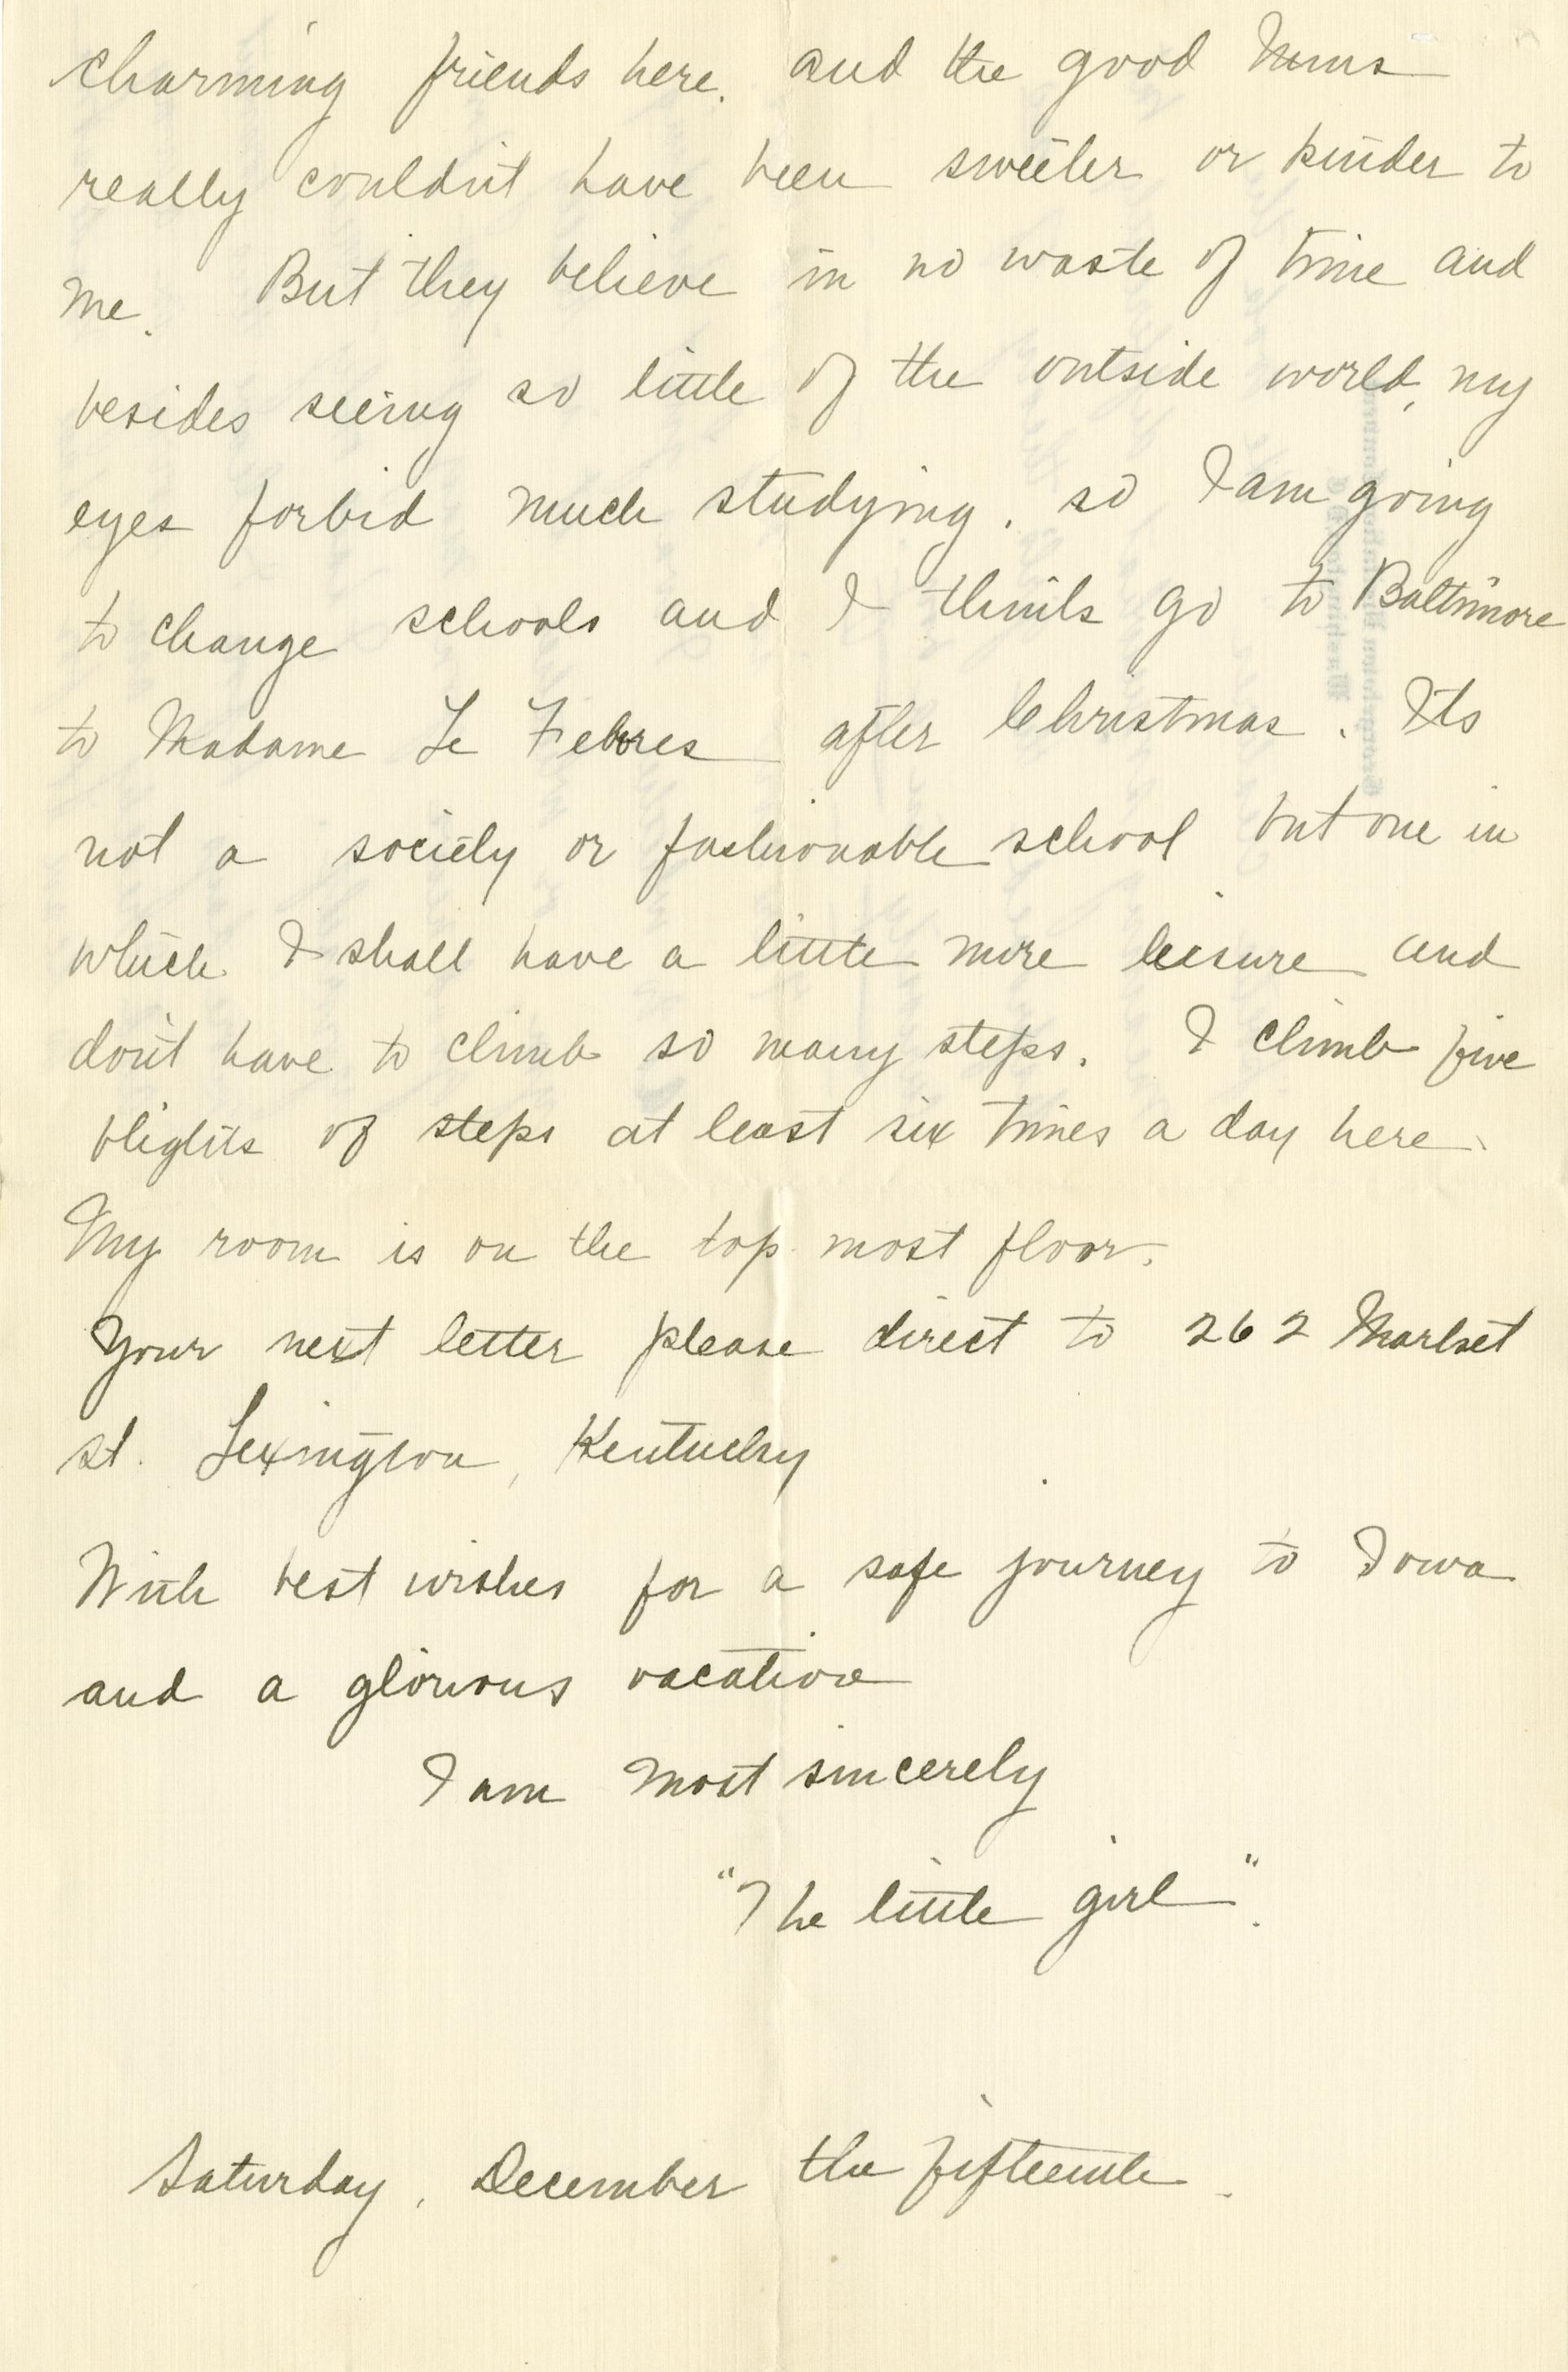 charming friends here. and the good Nuns
really couldn't have been sweeter or kinder to
me. But they believe in no waste of time and
besides seeing so little of the outside world, my
eyes forbid much studying, so I am going
to change schools and I think go to Baltimore
to Madame Le Febres after Christmas. Its
not a society or fashionable school but one in
which I shall have a little more leisure and
don't have to climb so many steps. I climb five
flights of steps at least six times a day here.
My room is on the top most floor.
Your next letter please direct to 262 Market
st. Lexington, Kentucky
With best wishes for a safe journey to Iowa
and a glorious vacation
I am most sincerely
"The little girl".
Saturday, December the fifteenth.